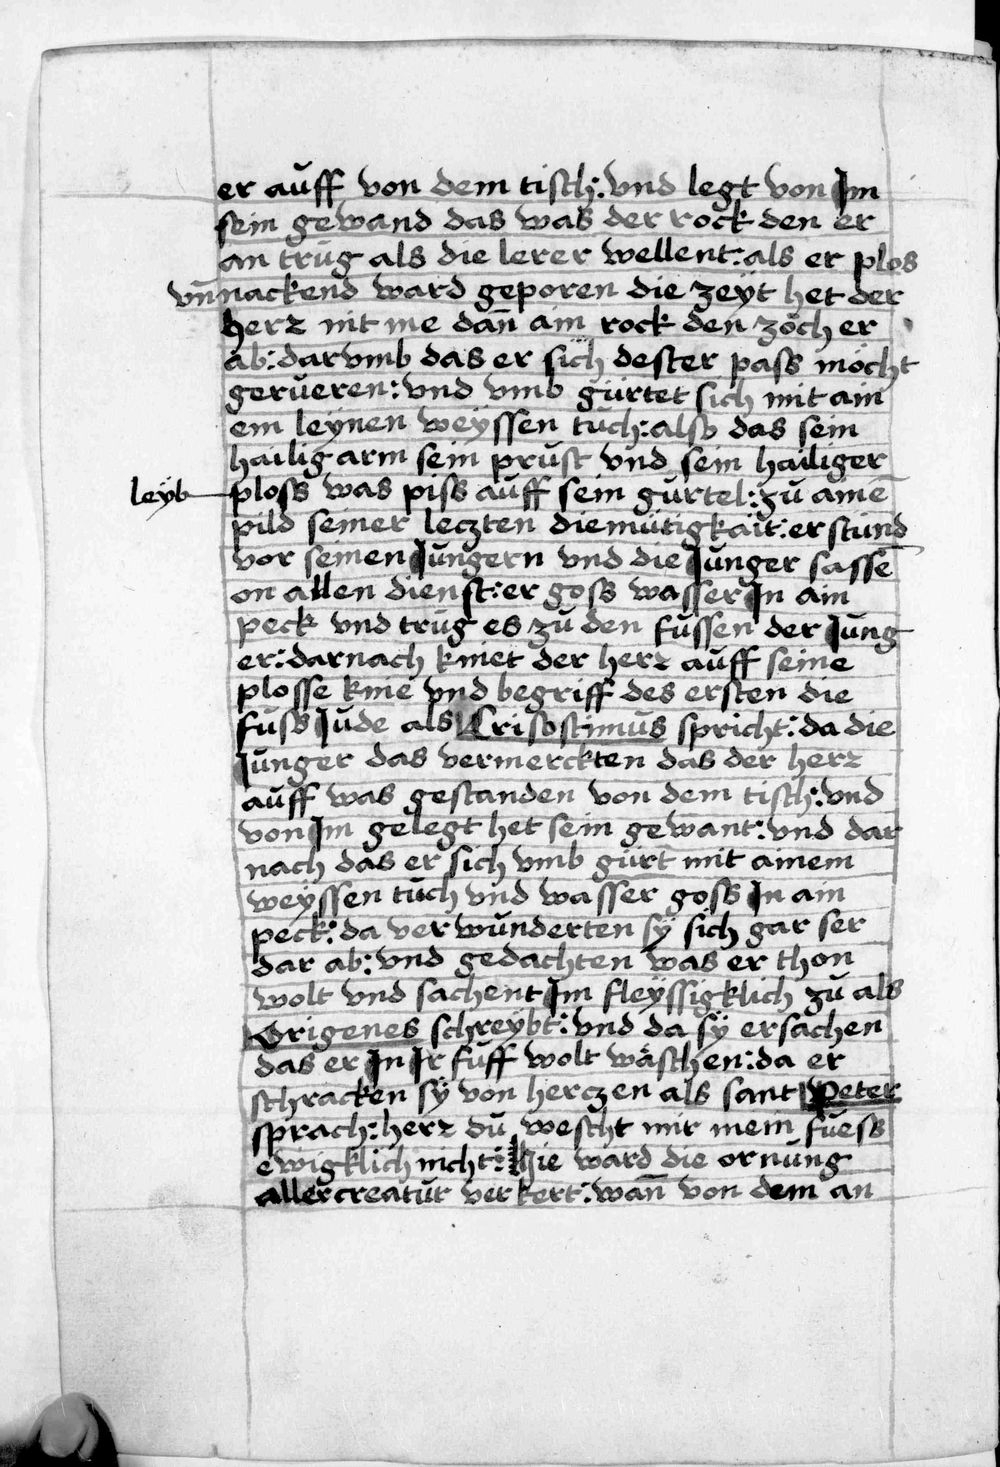 er aŭff von dem tisch: vnd legt von Im
sein gewand das was der rock den er
an trŭg als die lerer wellent: als er plos
vn̄ nackend ward geporen die zeÿt het der
herz nit me dan̄ ain rock den zöch er
ab: darvmb das er sich dester pass möcht
gerŭeren: vnd vmb gürtet sich mit ain
em leÿnen weÿssen tŭch: also das sein
hailig arm sein prŭst vnd sein hailiger
leyb
ploss was piss aŭff sein gŭrtel: zŭ amē
pild seiner leczten diemŭtigkait: er stŭnd
vor seinen Jŭngern vnd die Jŭnger sassē
on allen dienst: er goss wasser In ain
peck vnd trŭg es zŭ den fŭssen der Jŭng
er: darnach kniet der herz aŭff seine
plosse knie vnd begriff des ersten die
fŭss Jŭde als Crisostimŭs spricht: da die
Jŭnger das vermerckten das der herz
aŭff was gestanden von dem tisch: vnd
von Im gelegt het sein gewant: vnd dar
nach das er sich vmb gürt mit ainem
weÿssen tŭch vnd wasser goss In ain
peck: da ver wŭnderten sÿ sich gar ser
dar ab: vnd gedachten was er thon
wolt vnd sachent Im fleÿssigklich zŭ als
Origenes schreÿbt: vnd da sÿ ersachen
das er In Ir fŭss wolt wäschen: da er
schracken sÿ von herczen als sant Peter
sprach: herz dŭ wescht mir mein fŭess
ewigklich nicht: Hie ward die ornŭng
aller creatŭr ver kert: wan̄ von dem an